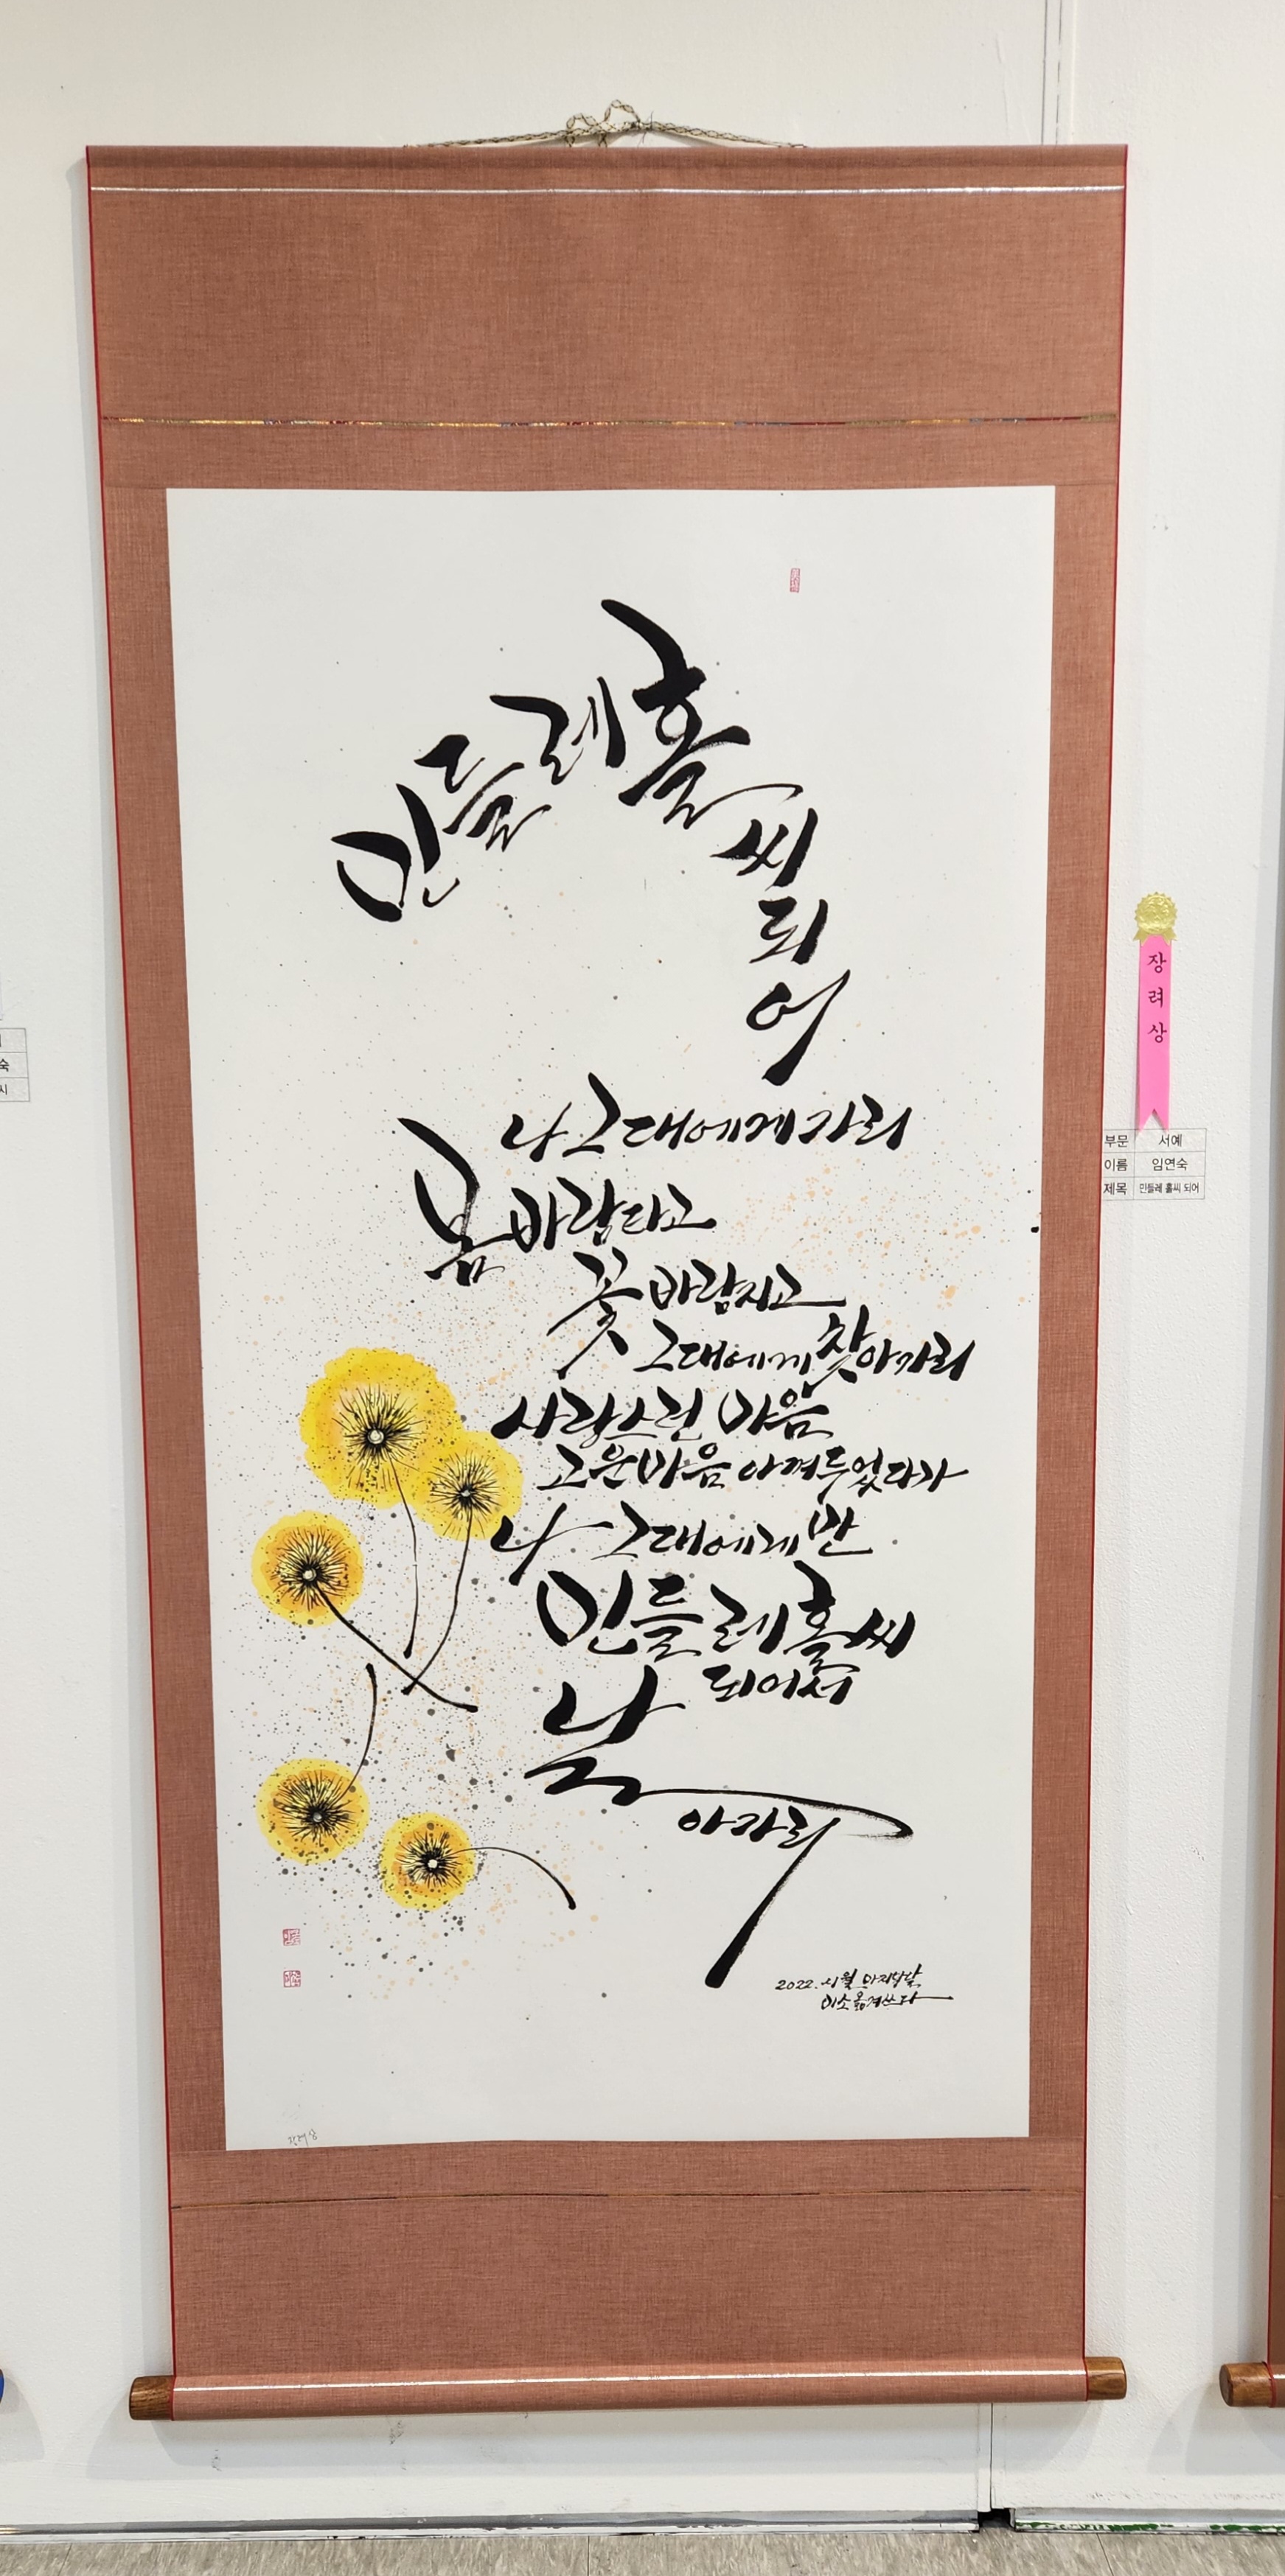 민들레홀
씨
되
어
나 그대에게 가리
봄바람타고
꽃바람지고
그대에게 찾아가리
사랑스런 마음
고운마음 아껴두었다가
나 그대에게만
민들레홀씨
되어서
날
아가리
2022. 시월 마지막날
이소 옮겨쓰다
장려상
장
려
상
부문 서예
이름 임연숙
제목 민들레 홀씨 되어
숙
시